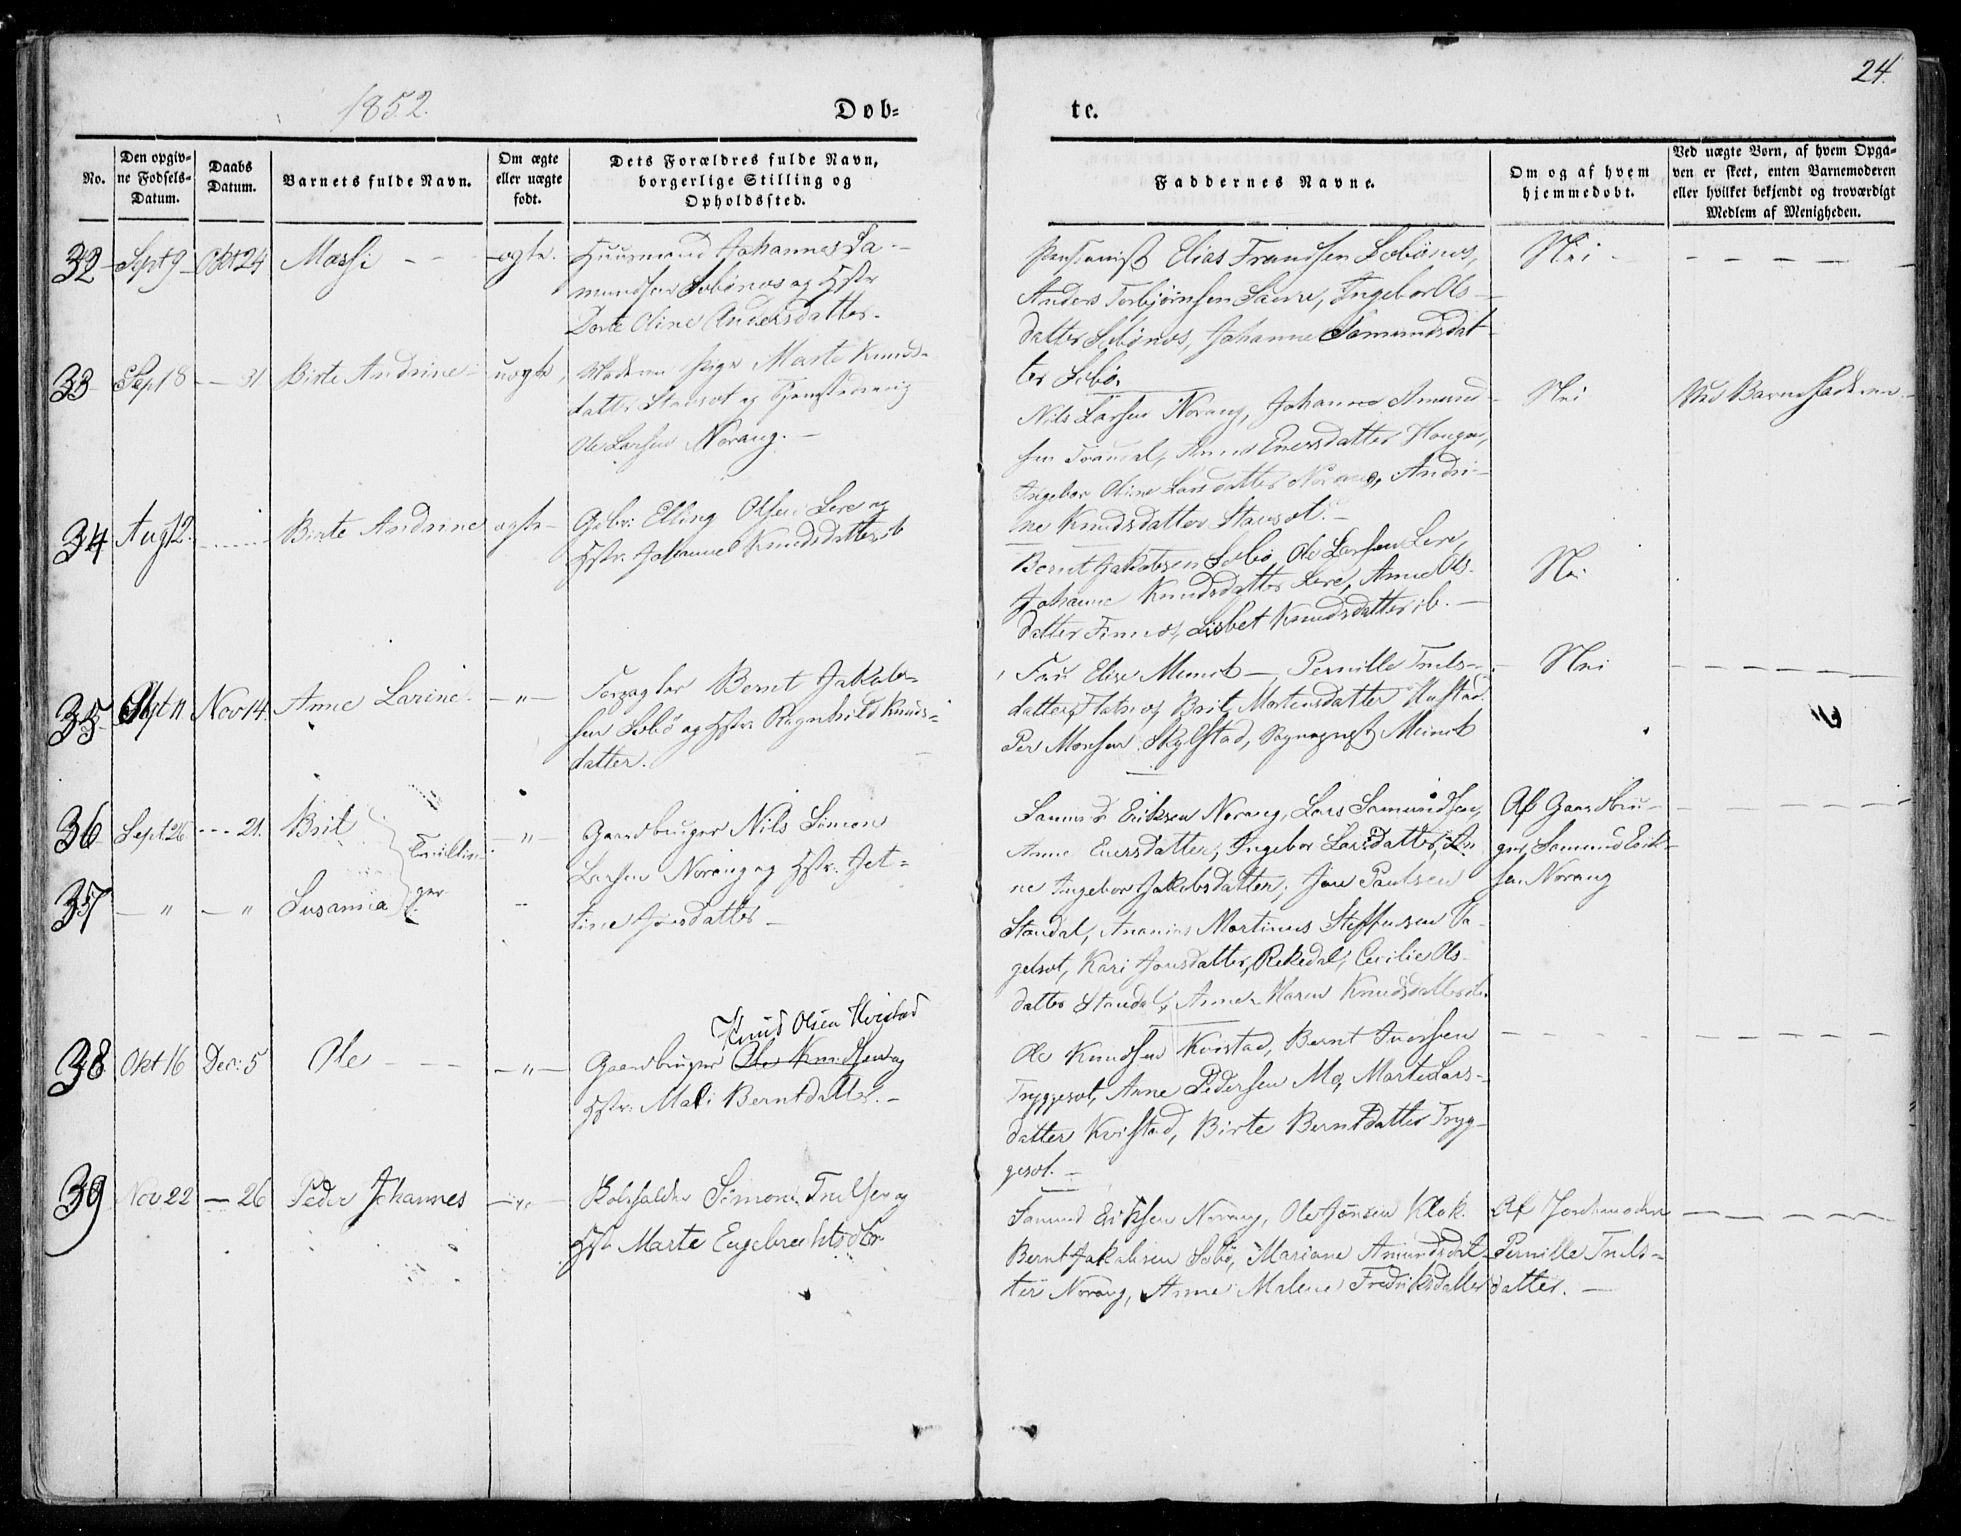 1852.
Døb=
te.
24.
No.
Den opgiv=
ne Fødsels=
Datum.
Daabs
Datum.
Barnets fulde Navn.
Om ægte
eller uægte
født.
Dets Forældres fulde Navn,
borgerlige Stilling og
Opholdssted.
Faddernes Navne.
Om og af hvem
hjemmedøbt.
Ved uægte Børn, af hvem Opga=
ven er skeet, enten Barnemoderen
eller hvilket bekjendt og troværdigt
Medlem af Menigheden.
32 Sept 9 Okt 24 Massi ægte.
Huusmand Johannes Sa-
mundsen Sæbønes og Hstr
Dorte Oline Andersdatter.
Elias Frandsen Sæbønes,
Anders Torbjørnsen Saure, Ingebor Ols-
datter Sæbønes, Johanne Samundsdat-
ter Sæbø.
Nei
33 Sept 8 — 31. Birte Andrine uægte
Moderen Pige Marte Knuds-
datter Stavsæt og
Ole Larsen Norang.
Nils Larsen Norang, Johanne Amund-
sen Trandal, Anne Eversdatter
Ingebor Oline Larsdatter Norang, Andri-
ne Knudsdatter Stavsæt.
Nei
Ved Barnefaderen
34 Aug 12. Birte Andrine ægte
Gdbr: Elling Olsen Lere og
Hstr: Johanne Knudsdatter ib
Bernt Jakobsen Sæbø, Ole Larsen Lere,
Johanne Knudsdatter Lere, Anne Ols-
datter Finnes, Lisbet Knudsdatter ib.
Nei
35 Sept 11 Nov 14. Anne Larine — „ —
Forpagter Bernt Jakob-
sen Sæbø og Hstr: Ragnhild Knuds-
datter.
Fru Elise Munch, Pernille Truls-
datter, Brit Mortensdatter
Per Monsen Skylstad, Sognepræst Munch
Nei
36 Sept 26 — 21. Brit
37 — „ — „ Susanna
Tvillin-
ger
— „ —
Gaardbruger Nils Simon
Larsen Norang og Hstr: Jet-
tine Jonsdatter
Samund Eriksen Norang, Lars Samundsen,
Anne Eversdatter, Ingebor Larsdatter, An-
ne Ingebor Jakobsdatter, Jon Paulsen
Standal, Ananias Martinus Steffensen Va-
gelsæt, Kari Jonsdatter, Rekedal, Cecilie Ols-
datter Standal, Anne Maren Knudsdatter ib.
Af Gaardbru-
ger Samund Erik-
sen Norang
38 Okt 16 Dec: 5 Ole — „ —
Knud Olsen Kvistad
Gaardbruger Ole Knudsen og
Hstr: Mali Berntdatter.
Ole Knudsen Kvistad, Bernt Iversen
Tryggesæt, Anne Pedersen Mo, Marte Lars-
datter Kvistad, Birte Berntdatter Tryg-
gesæt.
39 Nov 22 — 26 Peder Johannes — „ —
Simon Trulsen og
Hst Marte Engebrechtsdtr
Samund Eriksen Norang, Ole Jonsen Klok.
Bernt Jakobsen Sæbø, Mariane Amundsdat-
ter Norang, Anne Malene Fredriksdatter
Af Jordemoder
Pernille Truls-
datter.